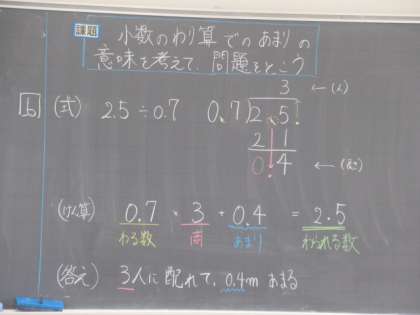 課題 小数のわり算でのあまりの
意味を考えて、問題をとこう
b (式) 2.5÷0.7
3 ←(人)
0.7)2.5
2 1
0.4 ←
(けん算) 0.7 × 3 + 0.4 = 2.5
わる数 商 あまり わられる数
(答え) 3人に配れて、0.4mあまる